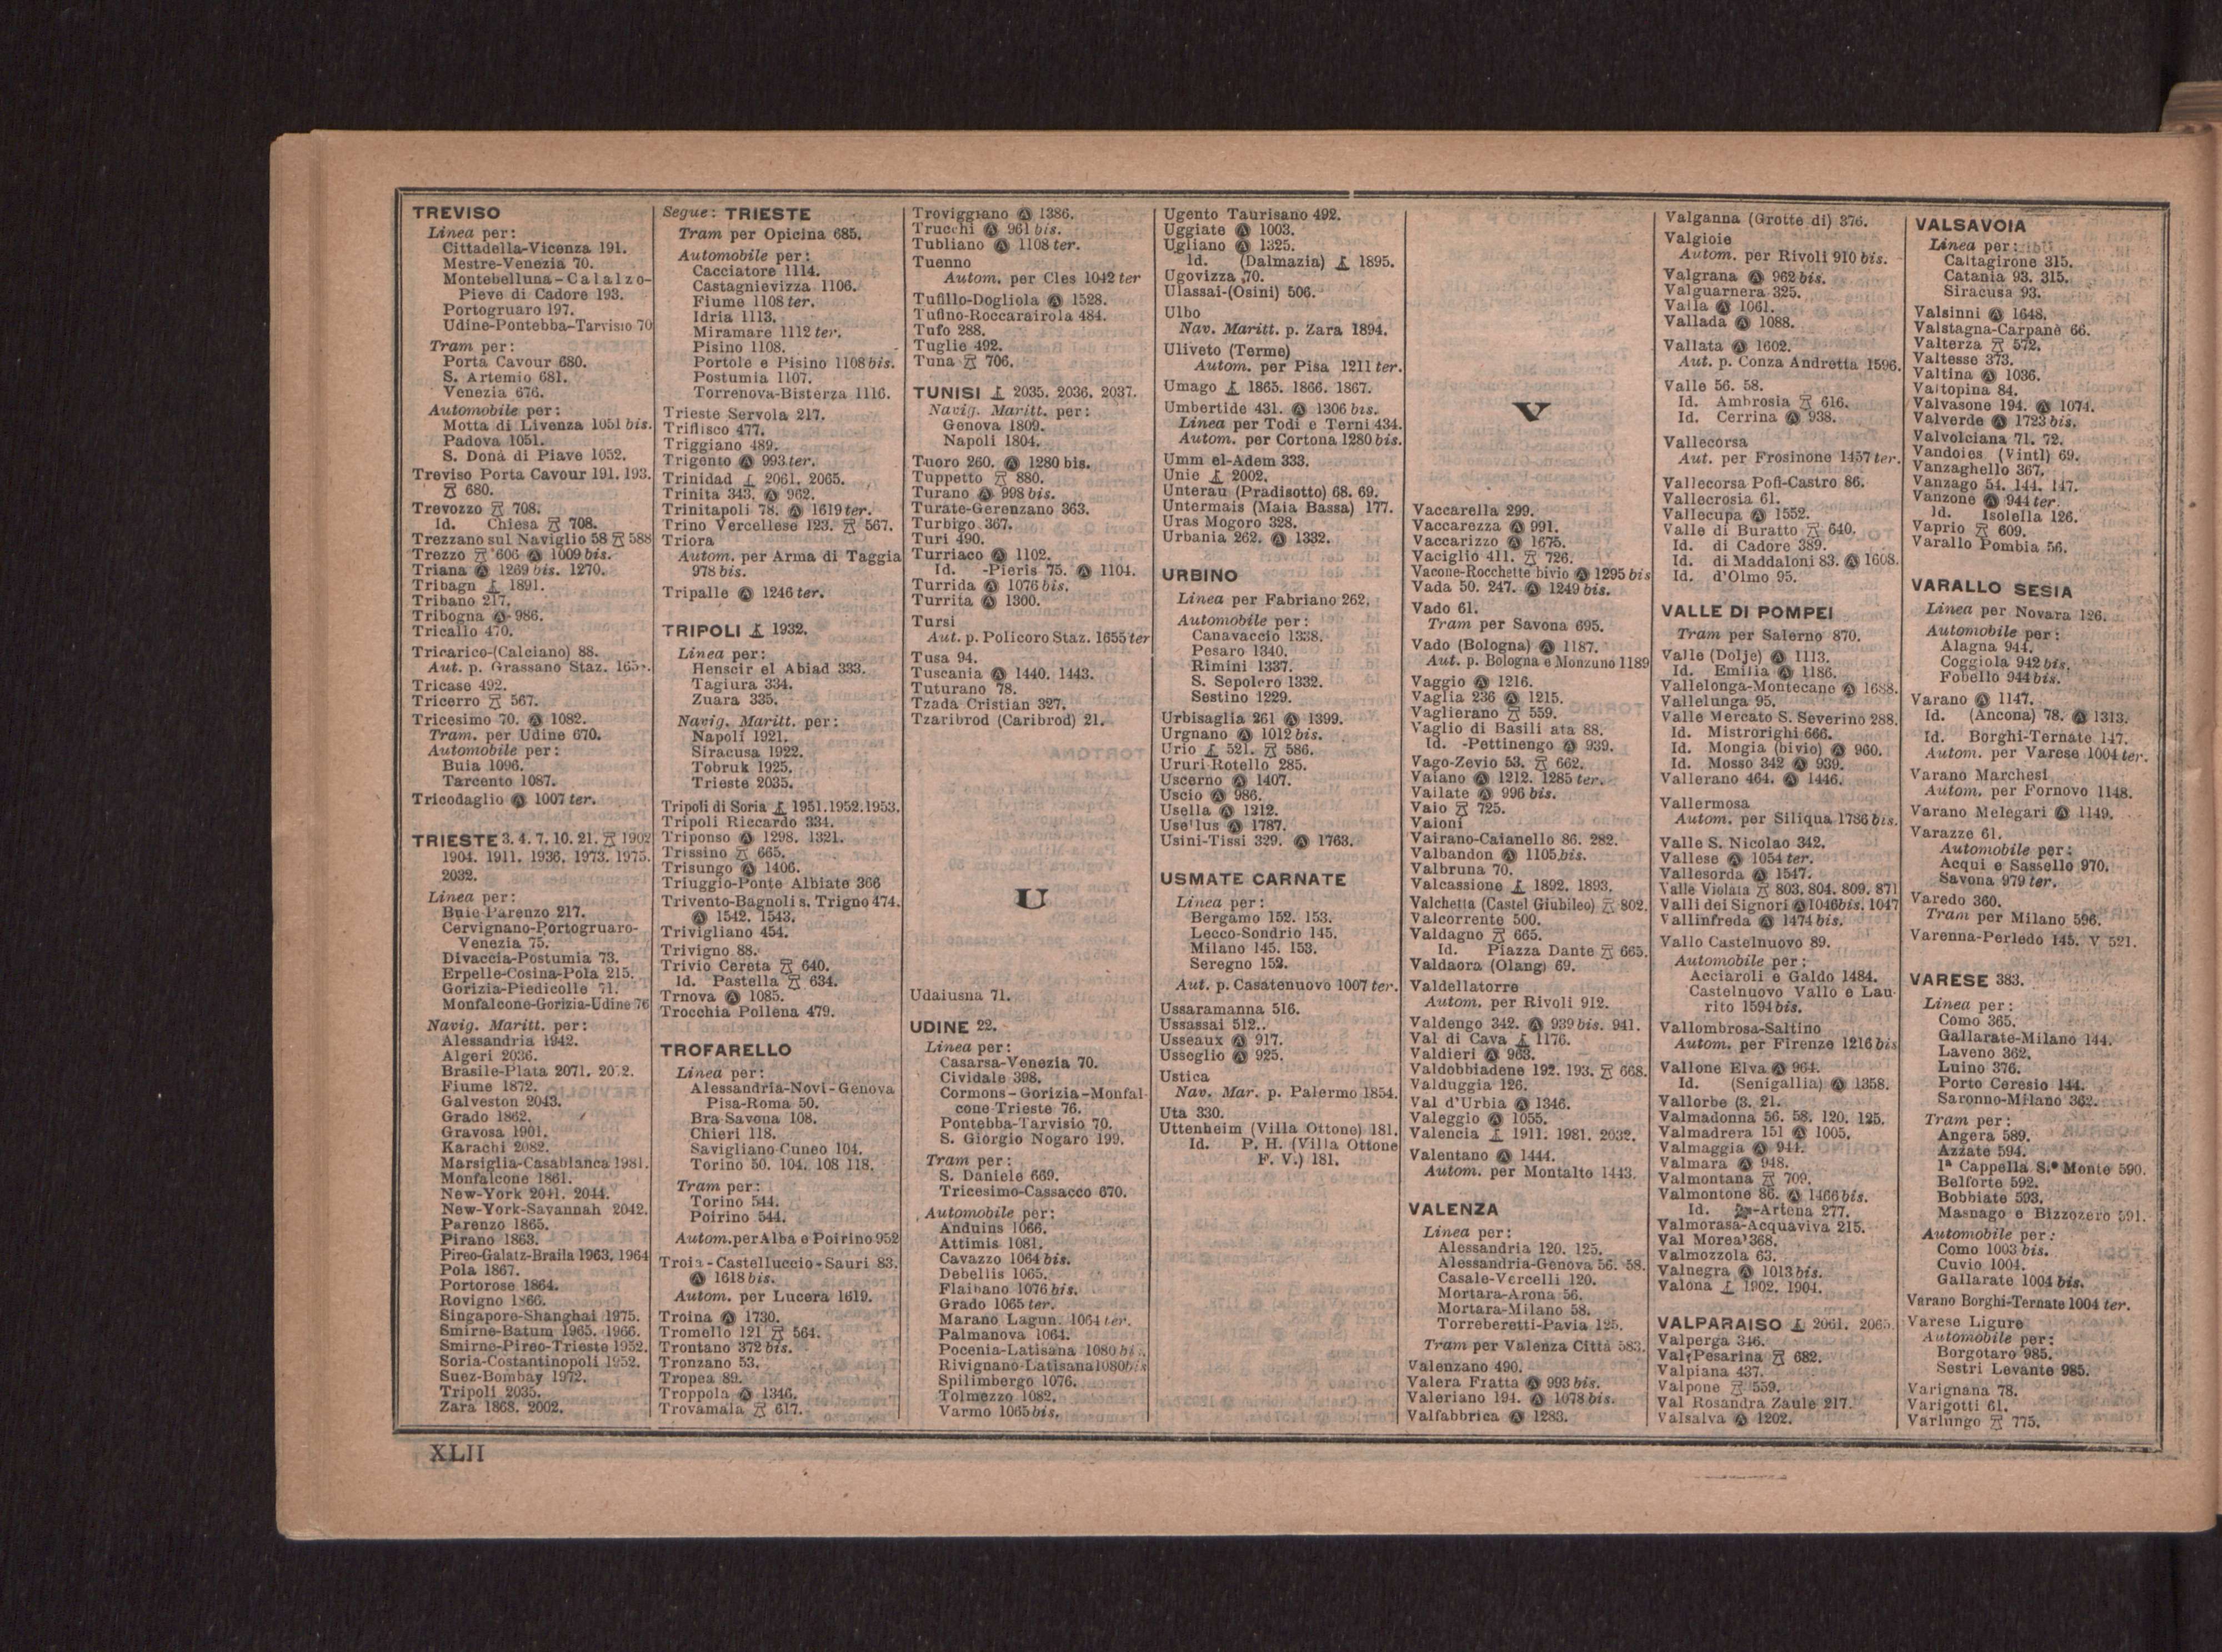 TREVISO
Linea per:
Cittadella-Vicenza 191.
Mestre-Venezia 70.
Montebelluna-Calalzo-
Pieve di Cadore 193.
Portogruaro 197.
Udine-Pontebba-Tarvisio 70
Tram per:
Porta Cavour 680.
S. Artemio 681.
Venezia 676.
Automobile per:
Motta di Livenza 1051 bis.
Padova 1051.
S. Donà di Piave 1052.
Treviso Porta Cavour 191. 193.
680.
Trevozzo 708.
Id. Chiesa 708.
Trezzano sul Naviglio 58 588
Trezzo 606 Ⓐ 1009 bis.
Triana Ⓐ 1269 bis. 1270.
Tribagn 1891.
Tribano 217.
Tribogna Ⓐ 986.
Tricallo 470.
Tricarico-(Calciano) 88.
Aut. p. Grassano Staz.
Tricase 492.
Tricerro 567.
Tricesimo 70. Ⓐ 1082.
Tram. per Udine 670.
Automobile per:
Buia 1096.
Tarcento 1087.
Tricodaglio Ⓐ 1007 ter.
TRIESTE 3. 4. 7. 10. 21. 1902
1904. 1911. 1936. 1973. 1975.
2032.
Linea per:
Buie-Parenzo 217.
Cervignano-Portogruaro-
Venezia 75.
Divaccia-Postumia 73.
Erpelle-Cosina-Pola 215.
Gorizia-Piedicolle 71.
Monfalcone-Gorizia-Udine 76
Navig. Maritt. per:
Alessandria 1942.
Algeri 2036.
Brasile-Plata 2071.
Fiume 1872.
Galveston 2043.
Grado 1862.
Gravosa 1901.
Karachi 2082.
Marsiglia-Casablanca 1981.
Monfalcone 1861.
New-York 2041. 2044.
New-York-Savannah 2042.
Parenzo 1865.
Pirano 1863.
Pireo-Galatz-Braila 1963. 1964
Pola 1867.
Portorose 1864.
Rovigno 1866.
Singapore-Shanghai 1975.
Smirne-Batum 1965. 1966.
Smirne-Pireo-Trieste 1952.
Soria-Costantinopoli 1952.
Suez-Bombay 1972.
Tripoli 2035.
Zara 1868. 2002.
Segue: TRIESTE
Tram per Opicina 685.
Automobile per:
Cacciatore 1114.
Castagnievizza 1106.
Fiume 1108 ter.
Idria 1113.
Miramare 1112 ter.
Pisino 1108.
Portole e Pisino 1108 bis.
Postumia 1107.
Torrenova-Bisterza 1116.
Trieste Servola 217.
Triflisco 477.
Triggiano 489.
Trigento Ⓐ 993 ter.
Trinidad 2061. 2065.
Trinita 343. Ⓐ 962.
Trinitapoli 78. Ⓐ 1619 ter.
Trino Vercellese 123. 567.
Triora
Autom. per Arma di Taggia
978 bis.
Tripalle Ⓐ 1246 ter.
TRIPOLI 1932.
Linea per:
Henscir el Abiad 333.
Tagiura 334.
Zuara 335.
Navig. Maritt. per:
Napoli 1921.
Siracusa 1922.
Tobruk 1925.
Trieste 2035.
Tripoli di Soria 1951.1952.1953.
Tripoli Riccardo 334.
Triponso Ⓐ 1298. 1321.
Trissino 665.
Trisungo Ⓐ 1406.
Triuggio-Ponte Albiate 366
Trivento-Bagnoli s. Trigno 474.
Ⓐ 1542. 1543.
Trivigliano 454.
Trivigno 88.
Trivio Cereta 640.
Id. Pastella 634.
Trnova Ⓐ 1085.
Trocchia Pollena 479.
TROFARELLO
Linea per:
Alessandria-Novi-Genova
Pisa-Roma 50.
Bra-Savona 108.
Chieri 118.
Savigliano-Cuneo 104.
Torino 50. 104. 108 118.
Tram per:
Torino 544.
Poirino 544.
Autom. per Alba e Poirino 952
Troia-Castelluccio-Sauri 83.
Ⓐ 1618 bis.
Autom. per Lucera 1619.
Troina Ⓐ 1730.
Tromello 121 564.
Trontano 372 bis.
Tronzano 53.
Tropea 89.
Troppola Ⓐ 1346.
Trovamala 617.
Troviggiano Ⓐ 1386.
Trucchi Ⓐ 961 bis.
Tubliano Ⓐ 1108 ter.
Tuenno
Autom. per Cles 1042 ter
Tufillo-Dogliola Ⓐ 1528.
Tufino-Roccarairola 484.
Tufo 288.
Tuglie 492.
Tuna 706.
TUNISI 2035. 2036. 2037.
Navig. Maritt. per:
Genova 1809.
Napoli 1804.
Tuoro 260. Ⓐ 1280 bis.
Tuppetto 880.
Turano Ⓐ 998 bis.
Turate-Gerenzano 363.
Turbigo 367.
Turi 490.
Turriaco Ⓐ 1102.
Id. -Pieris 75. Ⓐ 1104.
Turrida Ⓐ 1076 bis.
Turrita Ⓐ 1300.
Tursi
Aut. p. Policoro Staz. 1655 ter
Tusa 94.
Tuscania Ⓐ 1440. 1443.
Tuturano 78.
Tzada Cristian 327.
Tzaribrod (Caribrod) 21.
U
Udaiusna 71.
UDINE 22.
Linea per:
Casarsa-Venezia 70.
Cividale 398.
Cormons-Gorizia-Monfal-
cone-Trieste 76.
Pontebba-Tarvisio 70.
S. Giorgio Nogaro 199.
Tram per:
S. Daniele 669.
Tricesimo-Cassacco 670.
Automobile per:
Anduins 1066.
Attimis 1081.
Cavazzo 1064 bis.
Debellis 1065.
Flaibano 1076 bis.
Grado 1065 ter.
Marano Lagun. 1064 ter.
Palmanova 1064.
Pocenia-Latisana 1080 bis.
Rivignano-Latisana 1080 bis
Spilimbergo 1076.
Tolmezzo 1082.
Varmo 1065 bis.
Ugento Taurisano 492.
Uggiate Ⓐ 1003.
Ugliano Ⓐ 1325.
Id. (Dalmazia) 1895.
Ugovizza 70.
Ulassai-(Osini) 506.
Ulbo
Nav. Maritt. p. Zara 1894.
Uliveto (Terme)
Autom. per Pisa 1211 ter.
Umago 1865. 1866. 1867.
Umbertide 431. Ⓐ 1306 bis.
Linea per Todi e Terni 434.
Autom. per Cortona 1280 bis.
Umm el-Adem 333.
Unie 2002.
Unterau (Pradisotto) 68. 69.
Untermais (Maia Bassa) 177.
Uras Mogoro 328.
Urbania 262. Ⓐ 1332.
URBINO
Linea per Fabriano 262.
Automobile per:
Canavaccio 1338.
Pesaro 1340.
Rimini 1337.
S. Sepolcro 1332.
Sestino 1229.
Urbisaglia 261 Ⓐ 1399.
Urgnano Ⓐ 1012 bis.
Urio 521. 586.
Ururi-Rotello 285.
Uscerno Ⓐ 1407.
Uscio Ⓐ 986.
Usella Ⓐ 1212.
Usellus Ⓐ 1787.
Usini-Tissi 329. Ⓐ 1763.
USMATE CARNATE
Linea per:
Bergamo 152. 153.
Lecco-Sondrio 145.
Milano 145. 153.
Seregno 152.
Aut. p. Casatenuovo 1007 ter.
Ussaramanna 516.
Ussassai 512..
Usseaux Ⓐ 917.
Usseglio Ⓐ 925.
Ustica
Nav. Mar. p. Palermo 1854.
Uta 330.
Uttenheim (Villa Ottone) 181.
Id. P. H. (Villa Ottone
F. V.) 181.
V
Vaccarella 299.
Vaccarezza Ⓐ 991.
Vaccarizzo Ⓐ 1675.
Vaciglio 411. 726.
Vacone-Rocchette bivio Ⓐ 1295 bis
Vada 50. 247. Ⓐ 1249 bis.
Vado 61.
Tram per Savona 695.
Vado (Bologna) Ⓐ 1187.
Aut. p. Bologna e Monzuno 1189
Vaggio Ⓐ 1216.
Vaglia 236 Ⓐ 1215.
Vaglierano 559.
Vaglio di Basilicata 88.
Id. -Pettinengo Ⓐ 939.
Vago-Zevio 53. 662.
Vaiano Ⓐ 1212. 1285 ter.
Vailate Ⓐ 996 bis.
Vaio 725.
Vaioni
Vairano-Caianello 86. 282.
Valbandon Ⓐ 1105 bis.
Valbruna 70.
Valcassione 1892. 1893.
Valchetta (Castel Giubileo) 802.
Valcorrente 500.
Valdagno 665.
Id. Piazza Dante 665.
Valdaora (Olang) 69.
Valdellatorre
Autom. per Rivoli 912.
Valdengo 342. Ⓐ 939 bis. 941.
Val di Cava 1176.
Valdieri Ⓐ 963.
Valdobbiadene 192. 193. 668.
Valduggia 126.
Val d'Urbia Ⓐ 1346.
Valeggio Ⓐ 1055.
Valencia 1911. 1981. 2032.
Valentano Ⓐ 1444.
Autom. per Montalto 1443.
VALENZA
Linea per:
Alessandria 120. 125.
Alessandria-Genova 56. 58.
Casale-Vercelli 120.
Mortara-Arona 56.
Mortara-Milano 58.
Torreberetti-Pavia 125.
Tram per Valenza Città 583.
Valenzano 490.
Valera Fratta Ⓐ 993 bis.
Valeriano 194. Ⓐ 1078 bis.
Valfabbrica Ⓐ 1283.
Valganna (Grotte di) 376.
Valgioie
Autom. per Rivoli 910 bis.
Valgrana Ⓐ 962 bis.
Valguarnera 325.
Valla Ⓐ 1061.
Vallada Ⓐ 1088.
Vallata Ⓐ 1602.
Aut. p. Conza Andretta 1596.
Valle 56. 58.
Id. Ambrosia 616.
Id. Cerrina Ⓐ 938.
Vallecorsa
Aut. per Frosinone 1457 ter.
Vallecorsa Pofi-Castro 86.
Vallecrosia 61.
Vallecupa Ⓐ 1552.
Valle di Buratto 640.
Id. di Cadore 389.
Id. di Maddaloni 83. Ⓐ 1608.
Id. d'Olmo 95.
VALLE DI POMPEI
Tram per Salerno 870.
Valle (Dolje) Ⓐ 1113.
Id. Emilia Ⓐ 1186.
Vallelonga-Montecane Ⓐ 1688.
Vallelunga 95.
Valle Mercato S. Severino 288.
Id. Mistrorighi 666.
Id. Mongia (bivio) Ⓐ 960.
Id. Mosso 342 Ⓐ 939.
Vallerano 464. Ⓐ 1446.
Vallermosa
Autom. per Siliqua 1786 bis.
Valle S. Nicolao 342.
Vallese Ⓐ 1054 ter.
Vallesorda Ⓐ 1547.
Valle Violata 803. 804. 809. 871
Valli dei Signori Ⓐ 1046bis. 1047
Vallinfreda Ⓐ 1474 bis.
Vallo Castelnuovo 89.
Automobile per:
Acciaroli e Galdo 1484.
Castelnuovo Vallo e Lau-
rito 1594 bis.
Vallombrosa-Saltino
Autom. per Firenze 1216 bis
Vallone Elva Ⓐ 964.
Id. (Senigallia) Ⓐ 1358.
Vallorbe (3. 21.
Valmadonna 56. 58. 120. 125.
Valmadrera 151 Ⓐ 1005.
Valmaggia Ⓐ 944.
Valmara Ⓐ 948.
Valmontana 709.
Valmontone 86. Ⓐ 1466 bis.
Id. -Artena 277.
Valmorasa-Acquaviva 215.
Val Morea 368.
Valmozzola 63.
Valnegra Ⓐ 1013 bis.
Valona 1902. 1904.
VALPARAISO 2061. 2065.
Valperga 346.
Val Pesarina 682.
Valpiana 437.
Valpone 559.
Val Rosandra Zaule 217.
Valsalva Ⓐ 1202.
VALSAVOIA
Linea per:
Caltagirone 315.
Catania 93. 315.
Siracusa 93.
Valsinni Ⓐ 1648.
Valstagna-Carpanè 66.
Valterza 572.
Valtesse 373.
Valtina Ⓐ 1036.
Valtopina 84.
Valvasone 194. Ⓐ 1074.
Valverde Ⓐ 1723 bis.
Valvolciana 71. 72.
Vandoies (Vintl) 69.
Vanzaghello 367.
Vanzago 54. 144. 147.
Vanzone Ⓐ 944 ter.
Id. Isolella 126.
Vaprio 609.
Varallo Pombia 56.
VARALLO SESIA
Linea per Novara 126.
Automobile per:
Alagna 944.
Coggiola 942 bis.
Fobello 944 bis.
Varano Ⓐ 1147.
Id. (Ancona) 78. Ⓐ 1313.
Id. Borghi-Ternate 147.
Autom. per Varese 1004 ter.
Varano Marchesi
Autom. per Fornovo 1148.
Varano Melegari Ⓐ 1149.
Varazze 61.
Automobile per:
Acqui e Sassello 970.
Savona 979 ter.
Varedo 360.
Tram per Milano 596.
Varenna-Perledo 145. V 521.
VARESE 383.
Linea per:
Como 365.
Gallarate-Milano 144.
Laveno 362.
Luino 376.
Porto Ceresio 144.
Saronno-Milano 362.
Tram per:
Angera 589.
Azzate 594.
1ª Cappella S.º Monte 590.
Belforte 592.
Bobbiate 593.
Masnago e Bizzozero 591.
Automobile per:
Como 1003 bis.
Cuvio 1004.
Gallarate 1004 bis.
Varano Borghi-Ternate 1004 ter.
Varese Ligure
Automobile per:
Borgotaro 985.
Sestri Levante 985.
Varignana 78.
Varigotti 61.
Varlungo 775.
XLII